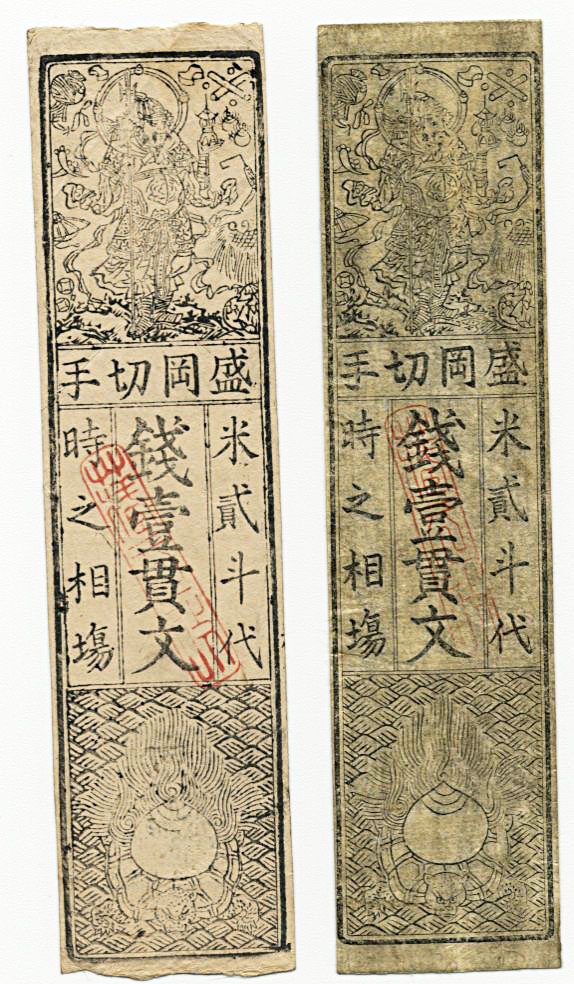 盛岡切手
米貳斗代
錢壹貫文
時之相塲
盛岡切手
米貳斗代
錢壹貫文
時之相塲